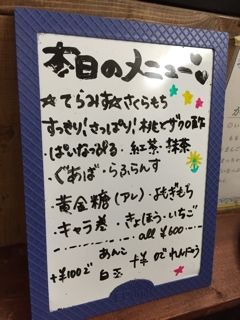 本日のメニュー
☆てらみす☆さくらもち
すっきり!さっぱり!桃とザクロ酢
・ぱいなっぷる・紅茶・抹茶
・ぐあば・らふらんす
・黄金糖(アレ)・よもぎもち
・キャラ巻・きょほう・いちご
all ¥600
+¥100で あんこ 白玉
+¥ 0で れんにゅう